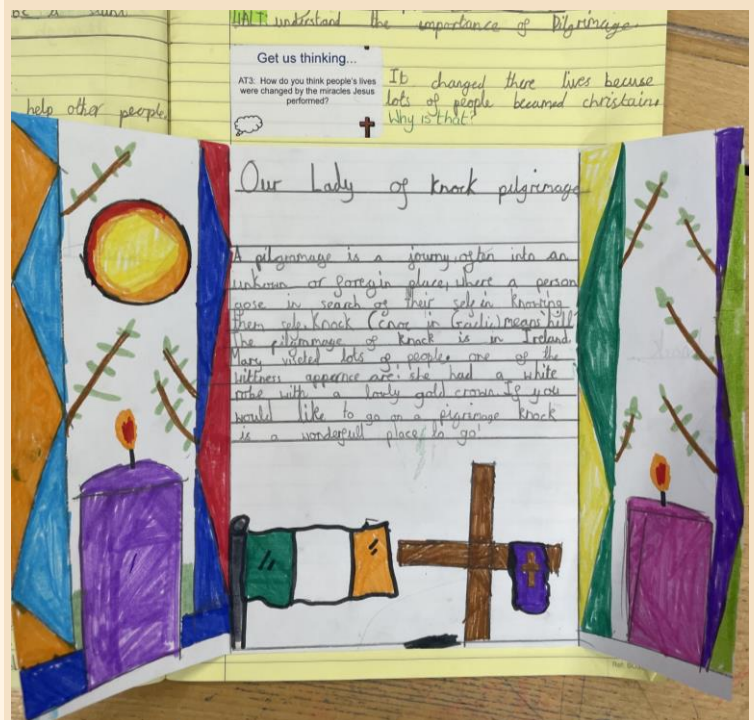 be a
WALT understand the importance of Pilgrimage.
Get us thinking...
AT3: How do you think people's lives
were changed by the miracles Jesus
performed?
It changed there lives becuse
lots of people becamed christains
Why is that?
help other people.
Our Lady of knock pilgrimage
A pilgrimmage is a journy often into an
unkown or foregin place, where a person
gose in search of their self in knowing
them self. Knock (cnoc in Gailic) means 'hill'
The pilgrimmage of knock is in Ireland.
Mary viseted lots of people. one of the
wittness appernce are: she had a white
robe with a lovly gold crown. If you
would like to go on a pigrimage knock
is a wonderfull place to go!